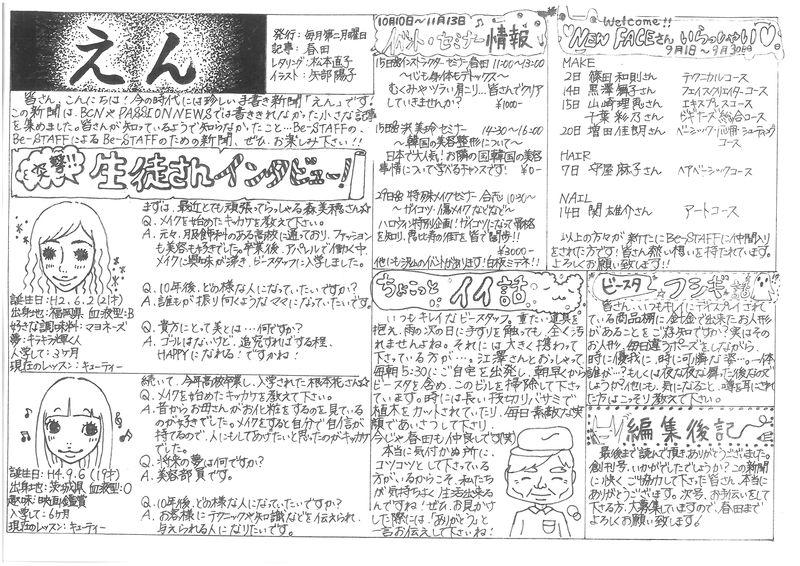 えん
発行：毎月第二月曜日
記事：春田
レタリング：松本直子
イラスト：矢部陽子
皆さん、こんにちは！今の時代には珍しい手書き新聞「えん」です。
この新聞は、BCNやPASSION NEWSでは書ききれなかった小さな記事
を集めました。皆さんが知っているようで知らなかったこと…Be-STAFFの、
Be-STAFFによるBe-STAFFのための新聞、ぜひ、お楽しみ下さい！！
突撃！
生徒さんインタビュー！
まずは、最近とても頑張ってらっしゃる森美穂さん☆
Q. メイクを始めたキッカケを教えて下さい。
A. 元々、服飾科のある高校に通っており、ファッション
も美容も好きでした。卒業後、アパレルで働く中、
メイクに興味が湧き、ビースタッフに入学しました。
Q. 10年後、どの様な人になっていたいですか？
A. 誰もが振り向くようなママになっていたいです。
Q. 貴方にとって美とは…何ですか？
A. ゴールはないけど、追究すればする程、
HAPPYになれる！ですかね！
誕生日：H2.6.2(21才)
出身地：福岡県 血液型：B
好きな調味料：マヨネーズ
夢：キラキラ輝く人
入学して：3ヶ月
現在のレッスン：キューティー
続いて、今年高校卒業し、入学された根本花さん☆
Q. メイクを始めたキッカケを教えて下さい。
A. 昔からお母さんがお化粧をするのを見ている
のが好きでした。メイクをすると自分で自信が
持てるので、人にもしてあげたいと思ったのがキッカケ
でした。
Q. 将来の夢は何ですか？
A. 美容部員です。
Q. 10年後、どの様な人になっていたいですか？
A. お客様にテクニックや知識などを伝えられ、
与えられる人になりたいです。
誕生日：H4.9.6(19才)
出身地：茨城県 血液型：O
趣味：映画鑑賞
入学して：6ヶ月
現在のレッスン：キューティー
10月10日〜11月13日
イベント・セミナー情報
15日(土)インストラクターセミナー春田 11:00〜13:00
〜心も身体もデトックス〜
むくみやヅラい肩こり…皆さんでクリア
していきませんか？ ¥1000-
15日(土)洪美玲セミナー 14:30〜16:00
〜韓国の美容整形について〜
日本で大人気！お隣の国韓国の美容
事情について学べるチャンスです！ ¥0-
29日(土)特殊メイクセミナー 10:30〜
〜ガイコツ・傷メイクなどなど〜
ハロウィン特別企画！ガイコツになって骨格
を知り、恵比寿の街を皆で闊歩！！
¥3000-
他にも沢山のイベントがあります！白板ミテネ！！
ちょこっとイイ話
いつもキレイなビースタッフ。重たい道具を
抱え、雨の次の日に手すりを触っても、全く汚
れませんよね。それには大きく携わって
下さっている方が…。江澤さんとおっしゃって
毎朝5:30にご自宅を出発し、朝早くから
ビースタを含め、このビルを掃除して下さっ
ています。時には長い千切りバサミで
植木をカットされていたり、毎日素敵な笑
顔であいさつして下さり、
今じゃ春田も仲良しです(笑)
本当に気付かぬ所に、
コツコツとして下さっている
方がいるからこそ、私たち
が気持ちよく生活出来る
んですね！ぜひ、お見かけ
した際には、「ありがとう」と
一言お伝えして下さいね！
Welcome!!
NEW FACEさんいらっしゃい♡
9月1日〜9月30日
MAKE
2日 篠田和則さん テクニカルコース
14日 黒澤綱子さん フェイスクリエイターコース
15日 山崎理恵さん エキスプレスコース
千葉彩乃さん ビギナーズ総合コース
20日 増田佳朗さん ベーシック(川柳)シューティング
コース
HAIR
7日 守屋麻子さん ヘアベーシックコース
NAIL
14日 関雄介さん アートコース
以上の方々が新たにBe-STAFFに仲間入り
をされた方です！皆さん熱い想いを持たれています。
よろしくお願い致します！！
ビースタ フシギ話
皆さん、いつもキレイにディスプレイされ
ている商品棚に針金で出来たお人形
があることをご存知ですか？実はその
お人形、毎日違うポーズをしながら、
時に優雅に、時に可憐な姿…。一体
誰が…？もしくは夜な夜な舞った後なので
しょうか？他にも、気になること、噂を耳にされ
た方はこっそり教えて下さい。
編集後記
最後まで読んで頂きありがとうございました。
創刊号、いかがでしたでしょうか？この新聞
に快くご協力して下さった皆さん、本当に
ありがとうございます。次号、お手伝いをして
下さる方、大募集していますので、春田まで
よろしくお願い致します！